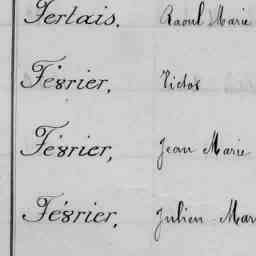 Gerlais. Raoul Marie
Février, Victor
Février, Jean Marie
Février, Julien Mar